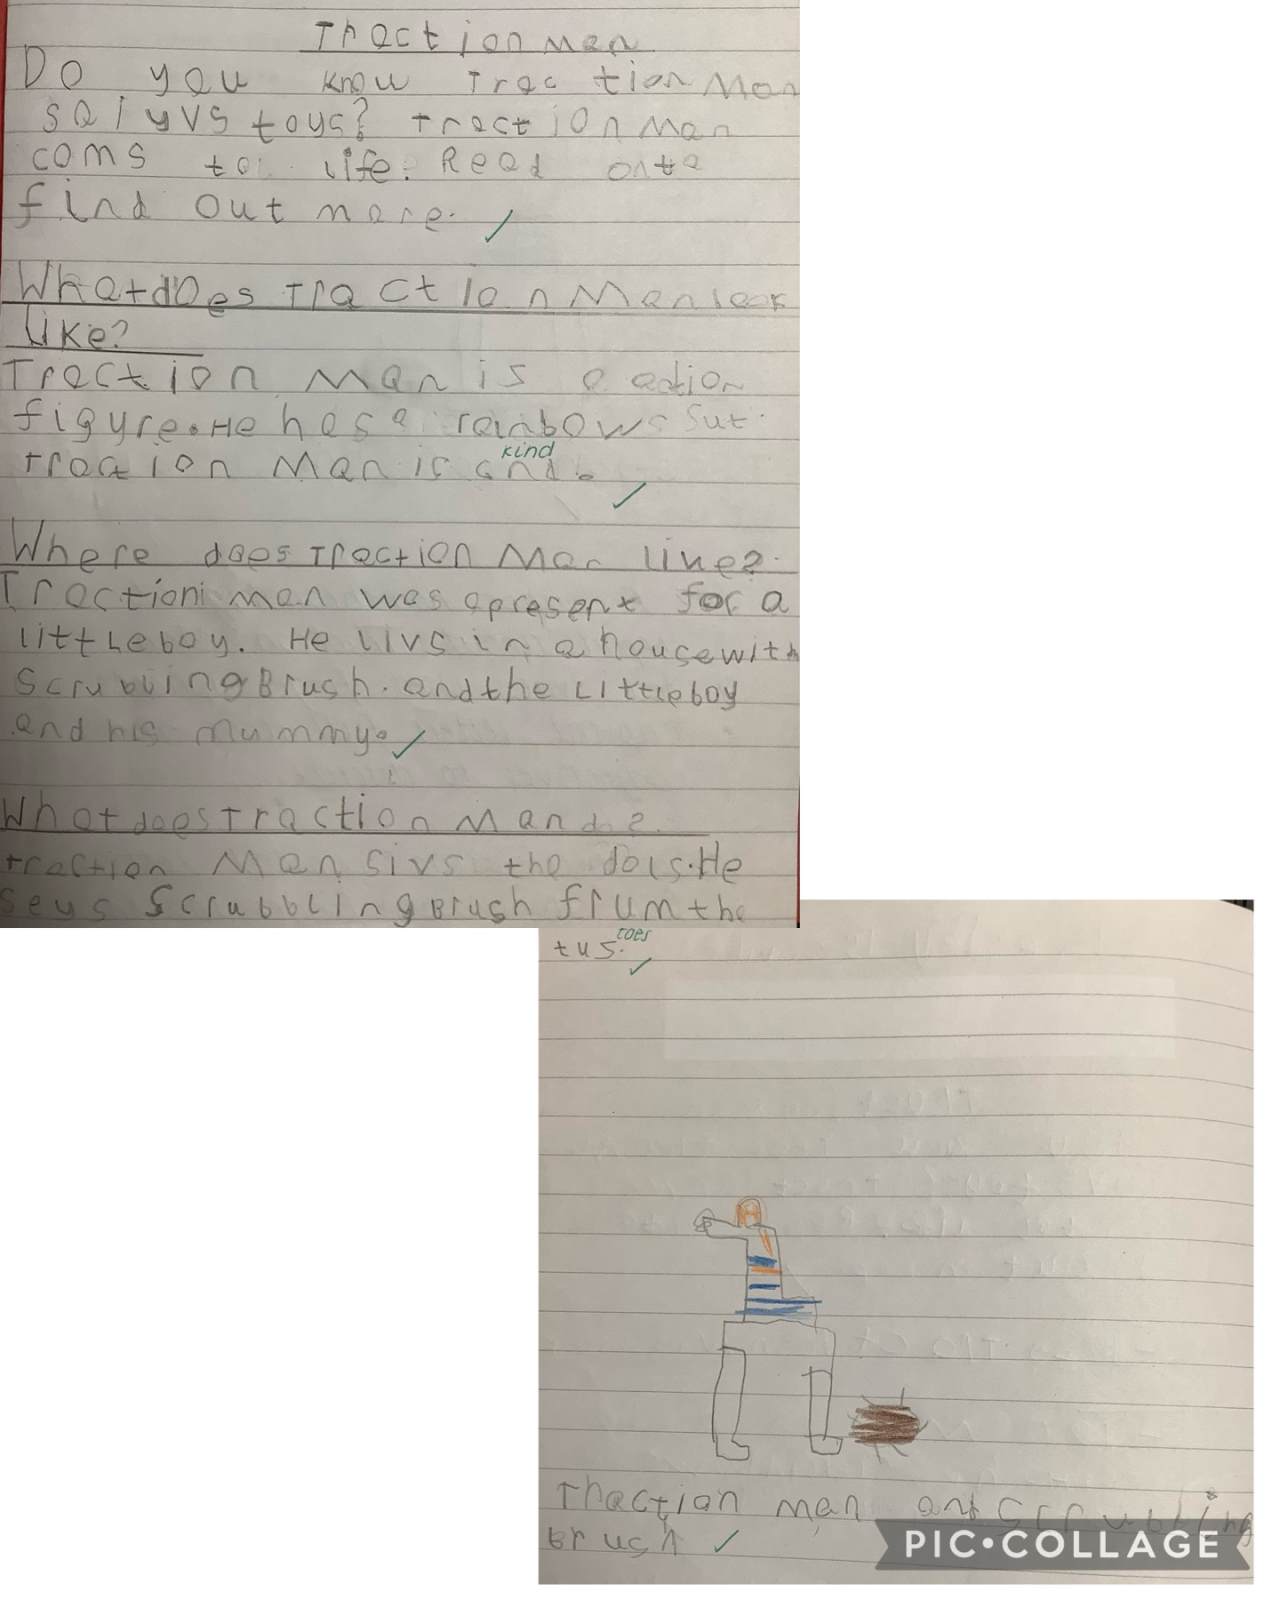 Traction Man
Do you know Traction Man
salyvs toys? Traction Man
coms to life. Read onto
find out more.
What does Traction Man look
like?
Traction Man is a action
figyre. He has a rainbows sut
kind
Traction Man is cnd.
Where does Traction Man live?
Traction man was a present for a
little boy. He livs in a house with
Scrubbling Brush. and the little boy
and his mummy.
What does Traction Man do?
traction Man sivs the dols. He
seys Scrubbling Brush frum the
toes
tus.
Thaction man and Scrubbing
Brush
PIC•COLLAGE